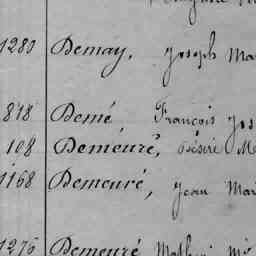 1280 Demay, Joseph Ma
818 Demé François Jos
108 Demeuré, Désiré Me
1168 Demeuré, Jean Mar
1276 Demeuré